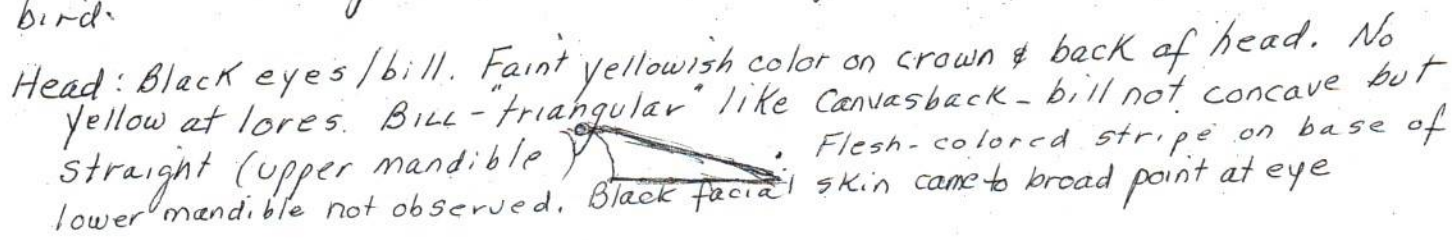 bird.
Head: Black eyes/bill. Faint yellowish color on crown & back of head. No
yellow at lores. BILL - "triangular" like Canvasback - bill not concave but
straight (upper mandible ) . Flesh-colored stripe on base of
lower mandible not observed. Black facial skin came to broad point at eye